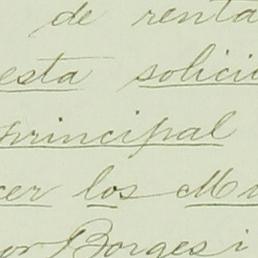 de renta
esta solici
principal
cer los Mu
or Borges i